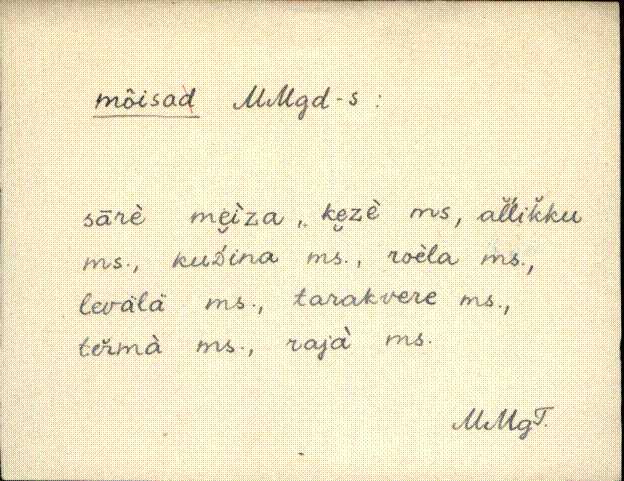 mõisad MMgd-s :
sārè me̮ìza, ke̮zè ms, all̆ik̆ku
ms., kuźina ms., roèla ms.,
levälä ms., tarakvere ms.,
ter̆mà ms., rajà ms.
MMgT.